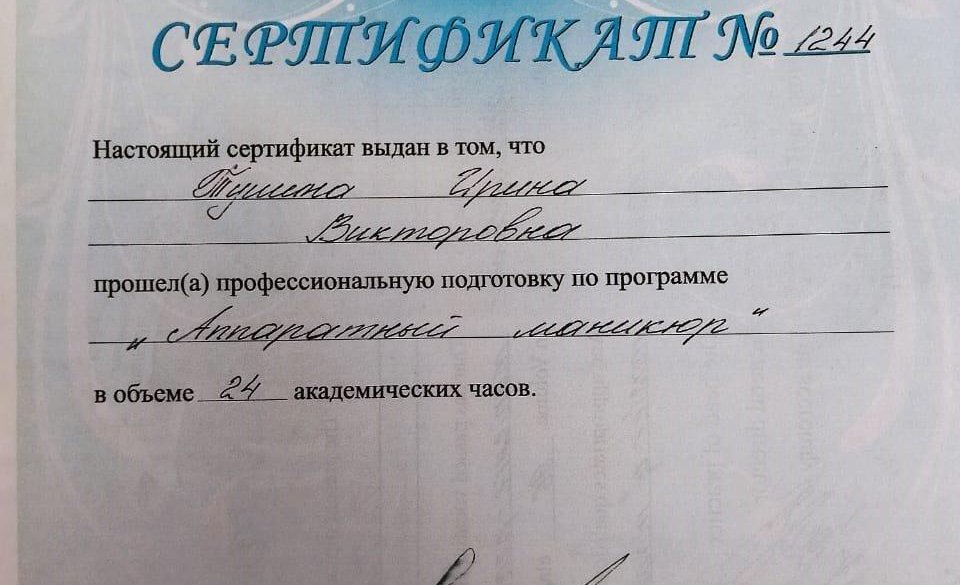 СЕРТИФИКАТ № 1244
Настоящий сертификат выдан в том, что
Тушина Ирина
Викторовна
прошел(а) профессиональную подготовку по программе
„Аппаратный маникюр“
в объеме 24 академических часов.